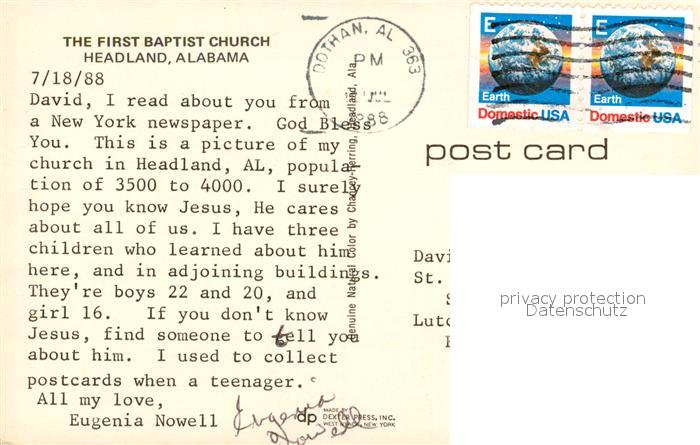 THE FIRST BAPTIST CHURCH
HEADLAND, ALABAMA
7/18/88
David, I read about you from
a New York newspaper. God Bless
You. This is a picture of my
church in Headland, AL, popula-
tion of 3500 to 4000. I surely
hope you know Jesus, He cares
about all of us. I have three
children who learned about him
here, and in adjoining buildings.
They're boys 22 and 20, and
girl 16. If you don't know
Jesus, find someone to tell you
about him. I used to collect
postcards when a teenager.
All my love,
Eugenia Nowell
Eugenia
Nowell
dp
MADE BY
DEXTER PRESS, INC.
WEST NYACK, NEW YORK
Genuine Natural Color by Chancey-Herring, Headland, Ala.
DOTHAN, AL 363
PM
JUL
1988
E
Earth
Domestic USA
E
Earth
Domestic USA
post card
Davi
St.
S
Lutc
privacy protection
Datenschutz